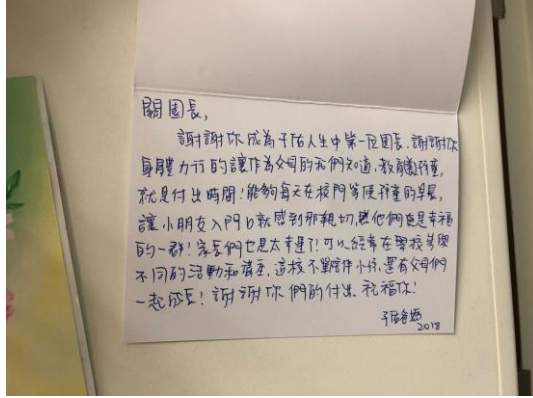 關園長,
謝謝你成為子佑人生中第一位園長,謝謝你
身體力行的讓作為父母的我們知道,教育孩童,
就是付出時間!能夠每天在校門等候孩童的早晨,
讓小朋友入門口就感到那親切,他們也是幸福
的一群!家長們也是太幸運了!可以經常在學校參與
不同的活動和講座,這校不單陪伴小孩,還有父母們
一起成長!謝謝你們的付出,祝福你!
子佑爸媽
2018